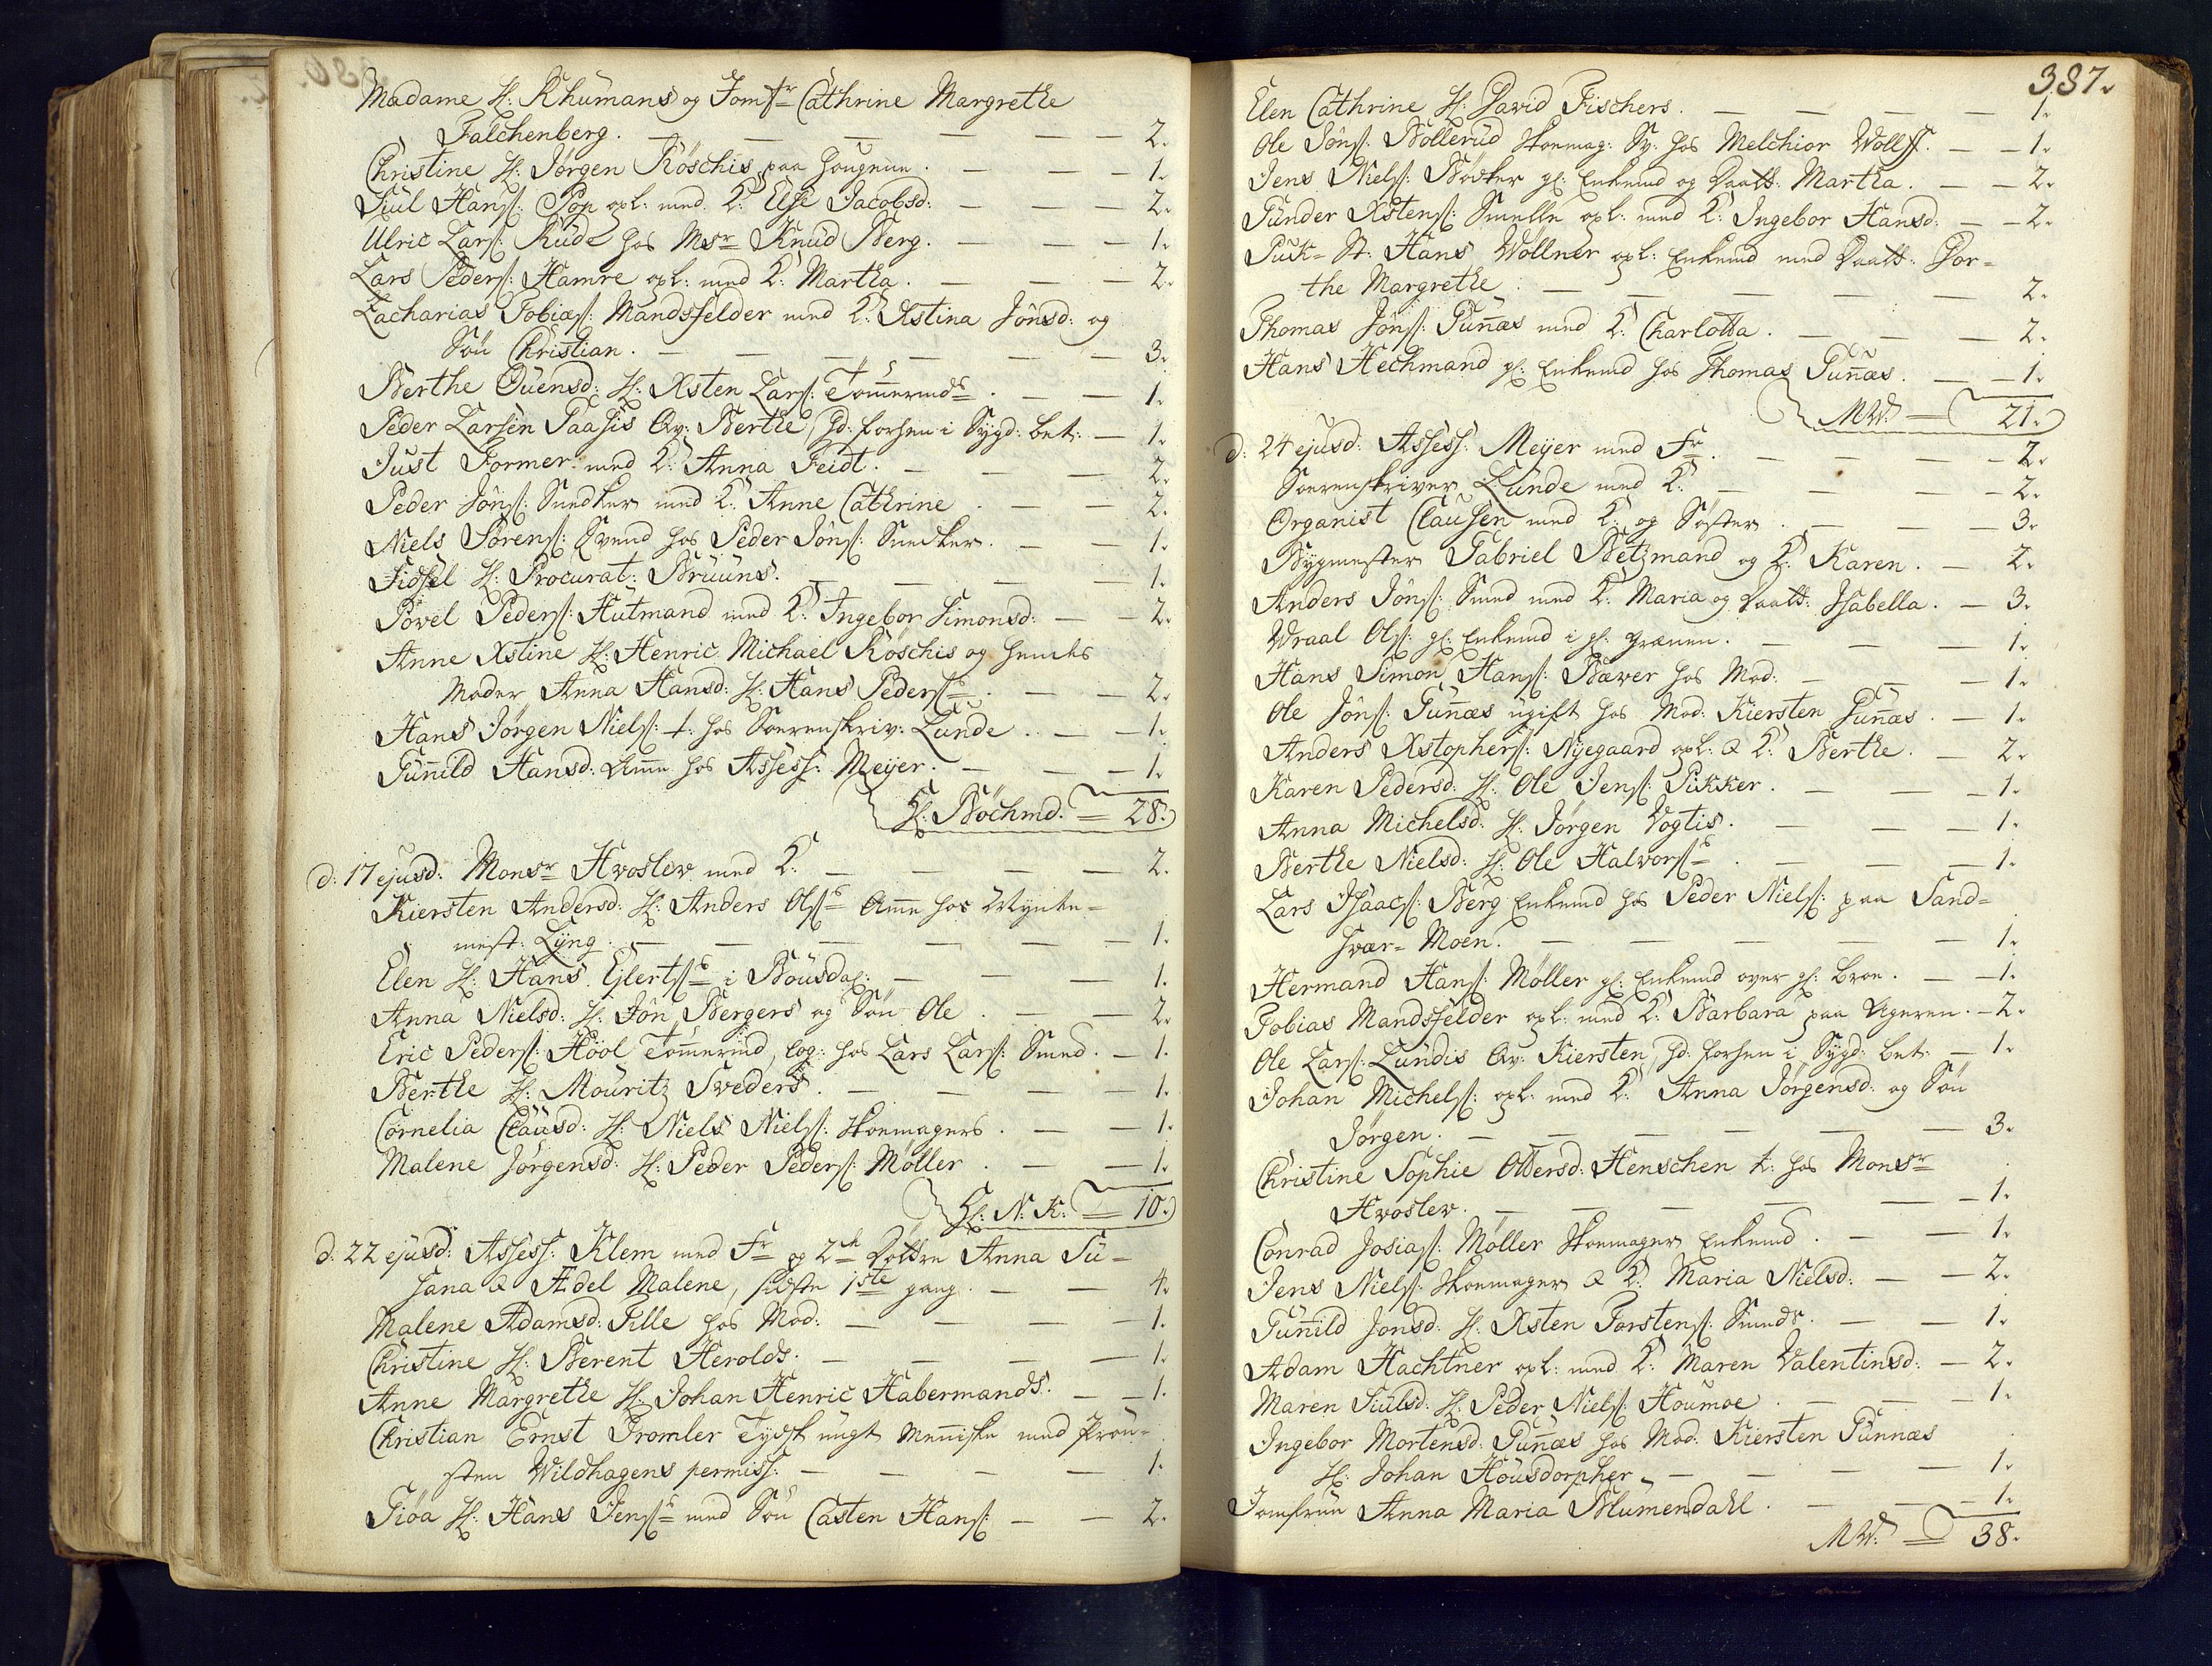 Madame H: Rhumans og Jomfr Cathrine Margrethe
Falchenberg. — 2.
Christine H: Jørgen Röschis paa Hougene. — 1.
Siul Hans: Pop opl: med K: Else Jacobsd: — 2.
Ulric Lars: Rude hos Msr Knud Berg. — 1.
Lars Peders: Hamre opl: med K: Martha. — 2.
Zacharias Tobias: Mandsfelder med K: Xstina Jönsd: og
Søn Christian. — 3.
Berthe Ouensd: H: Xsten Lars: Tömermds. — 1.
Peder Larsen Paasis Qv: Berthe, Hd: forhen i Sygd: bet: — 1.
Just Former med K: Anna Feidt. — 2.
Peder Jöns: Snedker med K: Anne Cathrine — 2.
Niels Sörens: Svend hos Peder Jöns: Snedker. — 1.
Sidsel H: Procurat: Bruuns. — 1.
Povel Peders: Hutmand med K: Ingebor Simonsd: — 2.
Anne Xstine H: Henric Michael Röschis og hendes
Moder Anna Hansd: H: Hans Peders: — 2.
Hans Jørgen Niels: t. hos Soerenskriv: Lunde. — 1.
Gunnild Hansd: Amme hos Assess: Meyer. — 1.
H: Böchmd. = 28.
d: 17 ejusd: Monsr Hvoslev med K: — 2.
Kiersten Andersd: H: Anders Ols: Amme hos Mynte=
mest: Lyng. — 1.
Elen H: Hans Ejlerts: i Bousdal: — 1.
Anna Nielsd: H: Jon Bergers og Søn Ole. — 2.
Eric Peders: Hööl Tömermd, log: hos Lars Lars: Smed. — 1.
Berthe H: Mouritz Sveders. — 1.
Cornelia Clausd: H: Niels Niels: Skoemagers. — 1.
Malene Jørgensd: H: Peder Peders: Møller. — 1.
H: N: K: = 10.
d: 22 ejusd: Assess: Klem med Fr og 2de Døttre Anna Su=
sana & Ædel Malene, sidste 1ste gang. — 4.
Malene Adamsd: Tille hos Mod: — 1.
Christine H: Berent Herolds. — 1.
Anne Margrethe H: Johan Henric Habermands. — 1.
Christian Ernst Dromler Tydsk ungt Menniske med Prou=
sten Wildhagens permiss: — 1.
Giöa H: Hans Jens: med Søn Casten Hans: — 2.
387.
Elen Cathrine H: David Fischers. — 1.
Ole Jöns: Böllerud Skoemag: Sv: hos Melchior Wolff. — 1.
Jens Niels: Bödker gl: Enkemd og Daatt: Martha. — 2.
Gunder Xstens: Smelle opl: med K: Ingebor Hansd: — 2.
Puk= St: Hans Wöllner opl: Enkemd med Daatt: Dor=
the Margrethe — 2.
Thomas Jöns: Gunnæs med K: Charlotta. — 2.
Hans Hechmand gl: Enkemd hos Thomas Gunnæs. — 1.
MW. = 21.
d: 24 ejusd: Assess: Meyer med Fr. — 2.
Soerenskriver Lunde med K: — 2.
Organist Clausen med K: og Søster. — 3.
Bygmester Gabriel Betzmand og K: Karen. — 2.
Anders Jöns: Smed med K: Maria og Daatt: Isabella. — 3.
Wraal Ols: gl: Enkemd i gl: Grænen. — 1.
Hans Simon Hans: Bæver hos Mod: — 1.
Ole Jöns: Gunnæs ugift hos Mod: Kiersten Gunnæs. — 1.
Anders Xstophers: Nyegaard opl: & K: Berthe. — 2.
Karen Pedersd: H: Ole Jens: Pikker. — 1.
Anna Michelsd: H: Jørgen Vogtis. — 1.
Berthe Nielsd: H: Ole Halvors: — 1.
Lars Isaacs: Berg Enkemd hos Peder Niels: paa Sand=
svær= Moen. — 1.
Hermand Hans: Møller gl: Enkemd over gl: broe. — 1.
Tobias Mandsfelder opl: med K: Barbara paa Ageren. — 2.
Ole Lars: Lundis Qv: Kiersten, Hd: forhen i Sygd: bet: — 1.
Johan Michels: opl: med K: Anna Jørgensd: og Søn
Jørgen. — 3.
Christine Sophie Ottersd: Henschen t: hos Monsr
Hvoslev. — 1.
Conrad Josias: Møller Skoemager Enkemd. — 1.
Jens Niels: Skoemager & K: Maria Nielsd: — 2.
Gunnild Jonsd: H: Xsten Torstens: Smeds. — 1.
Adam Hachtner opl: med K: Maren Valentinsd: — 2.
Maren Siulsd: H: Peder Niels: Houmoe. — 1.
Ingebor Mortensd: Gunnæs hos Mod: Kiersten Gunnæs
H: Johan Housdorpher — 1.
Jomfrue Anna Maria Blumendahl. — 1.
MW. = 38.